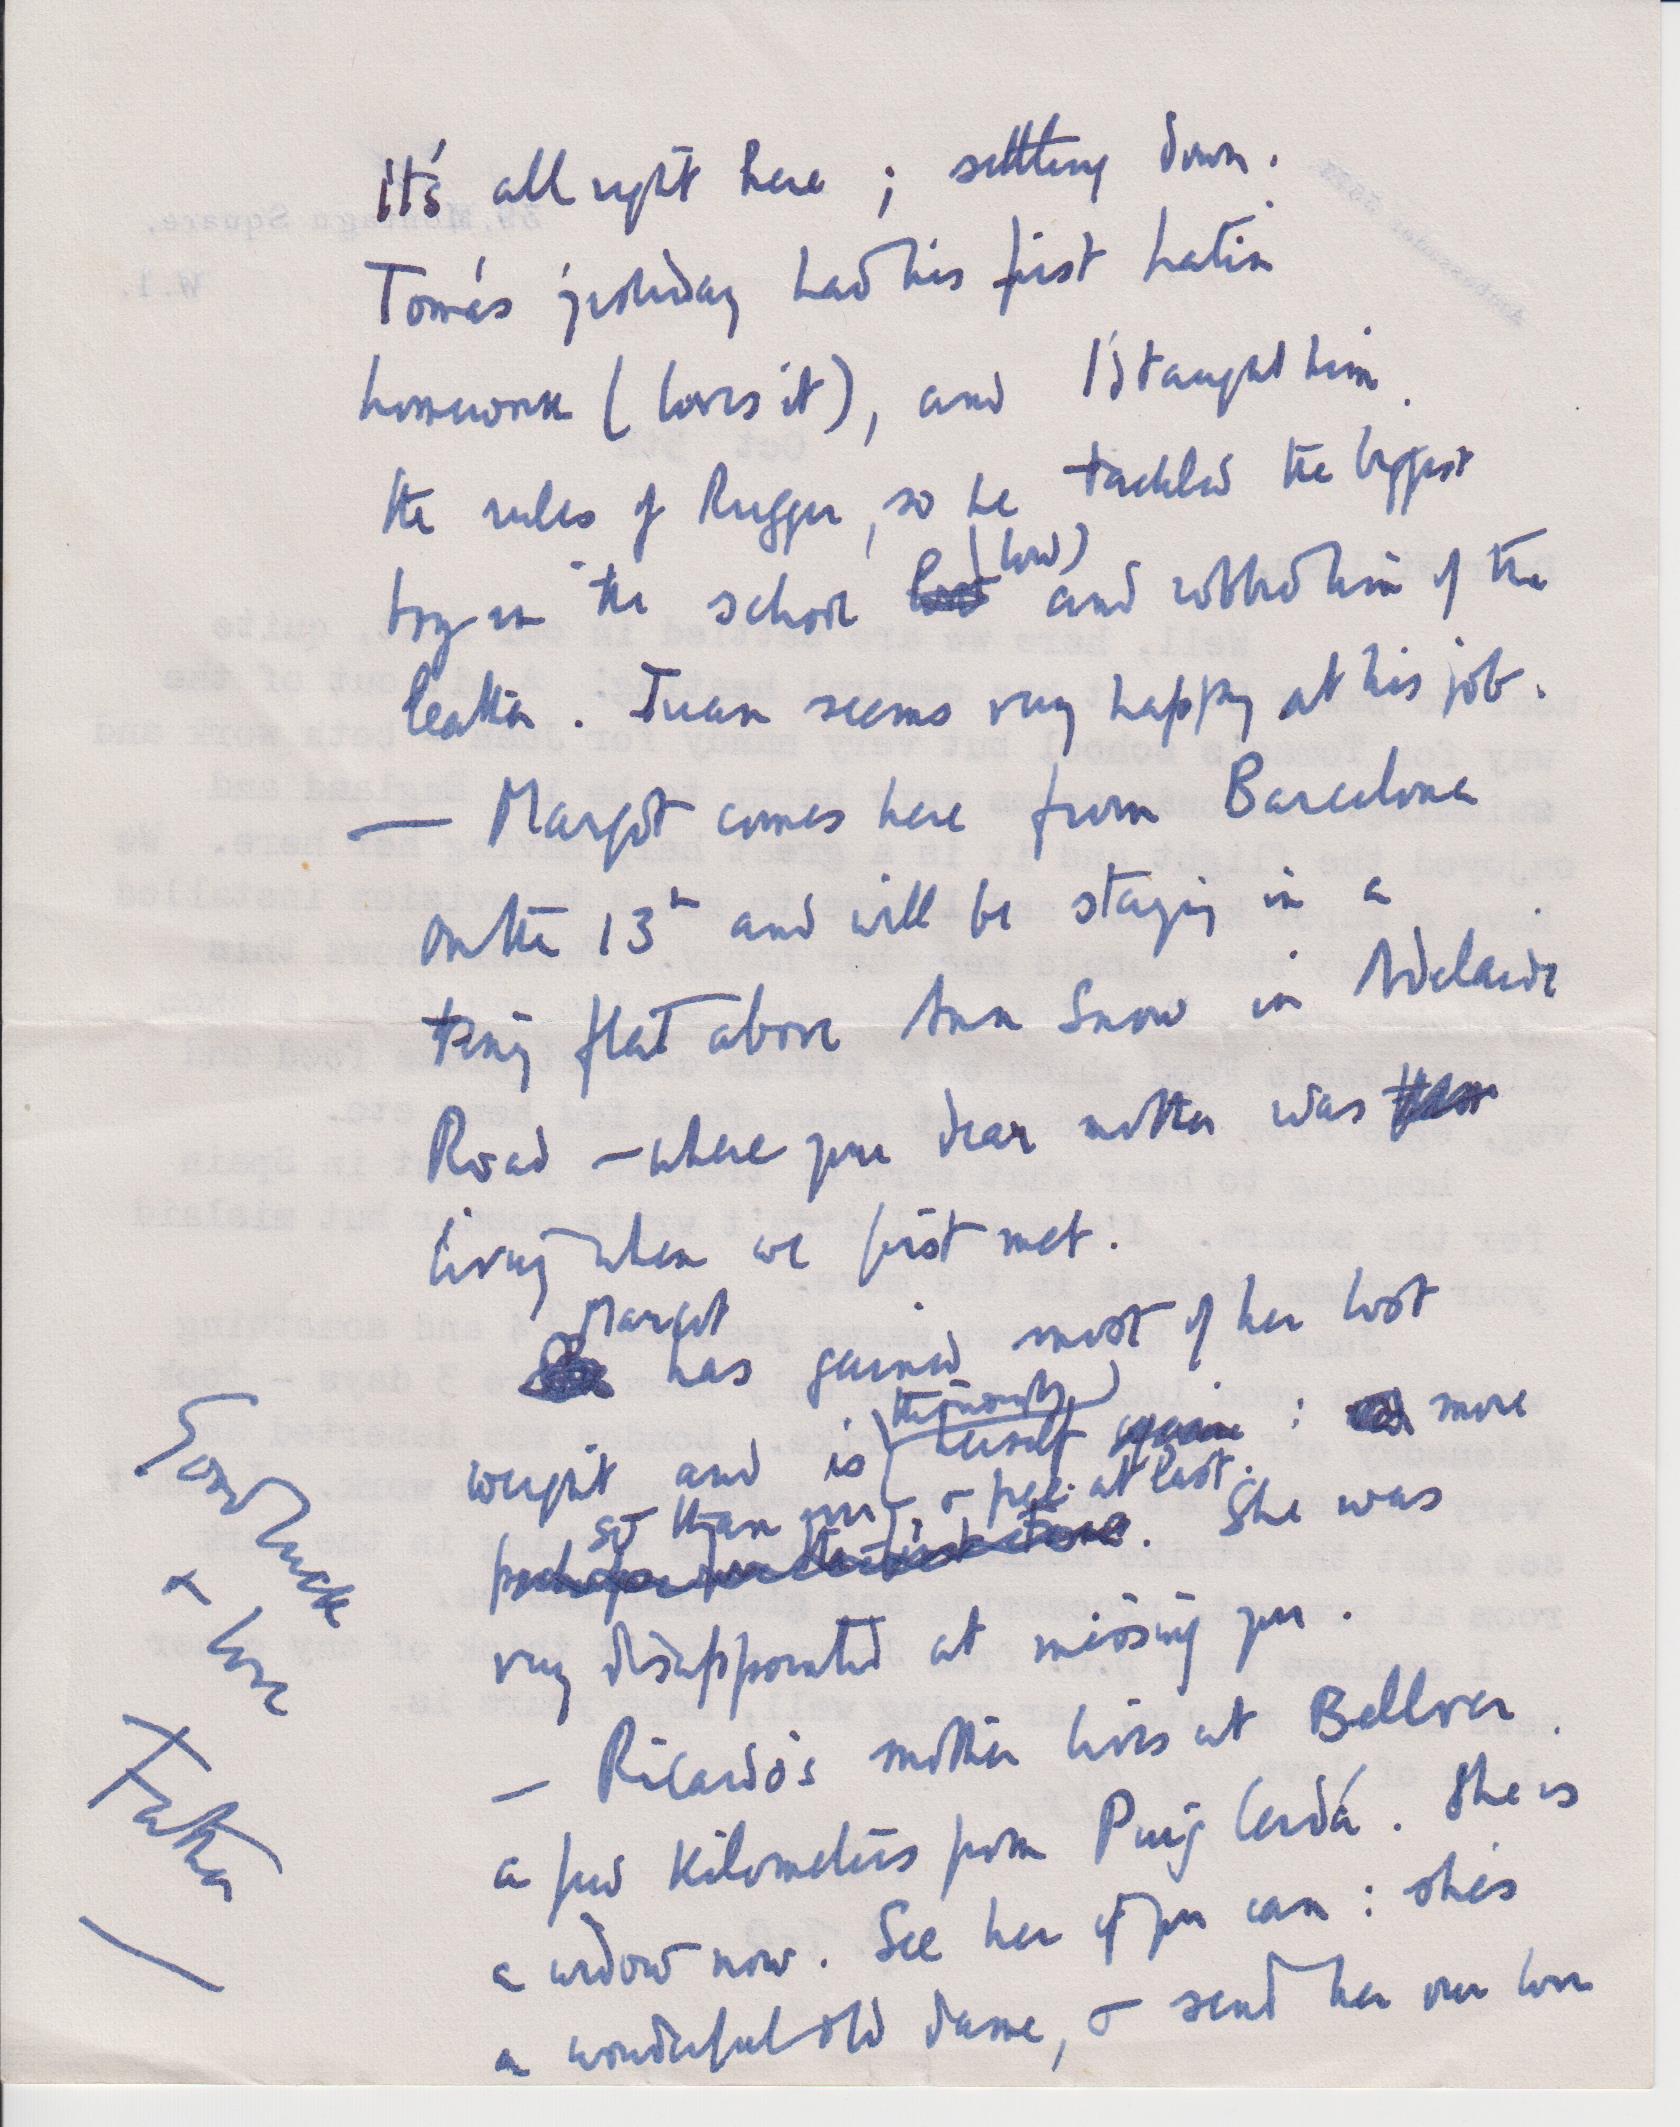 it's all right here ; settling down.
Tomás yesterday had his first Latin
homework (loves it), and I'd taught him
the rules of Rugger, so he tackled the biggest
boy in the school (low) and robbed him of the
leather. Juan seems very happy at his job.
— Margot comes here from Barcelona
on the 13th and will be staying in a
tiny flat above Ann Snow in Adelaide
Road – where your dear mother was
living when we first met.
Margot has gained most of her lost
weight and is (thoroughly) herself again : more
so than ever, & free at last.
perhaps for the first time. She was
very disappointed at missing you.
— Ricardo's mother lives at Bellver
a few kilometers from Puig Cerdá. She is
a widow now. See her if you can : she's
a wonderful old dame, & send her our love
Good luck
& love
Father